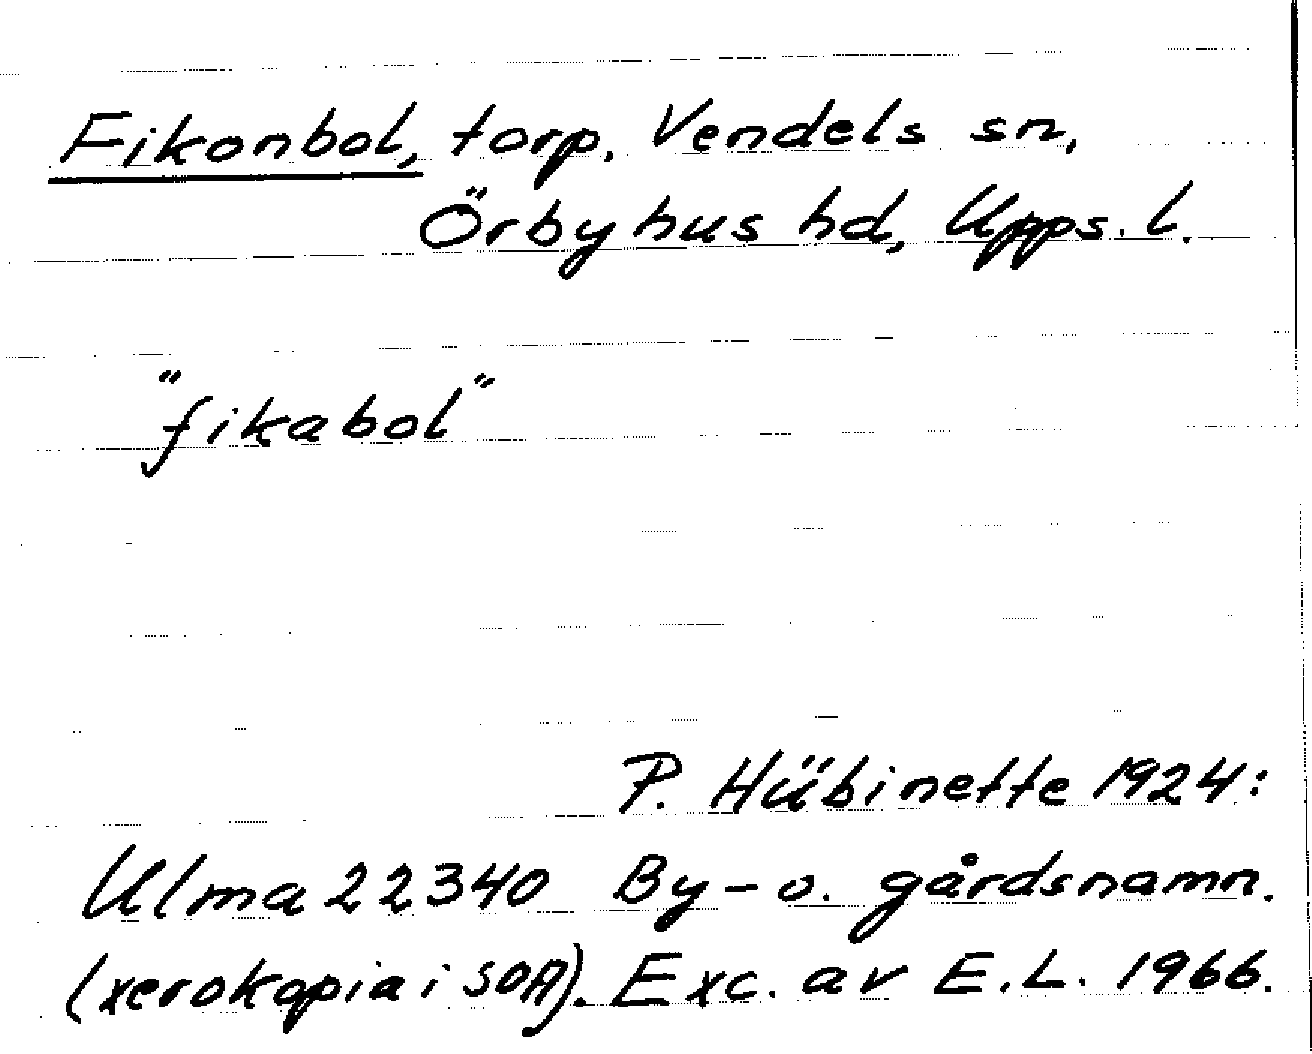 Fikonbol, torp, Vendels sn,
Örbyhus hd, Upps. l.
"fikabol"
P. Hübinette 1924:
Ulma 22340 By- o. gårdsnamn.
(xerokopia i SOA). Exc. av E.L. 1966.